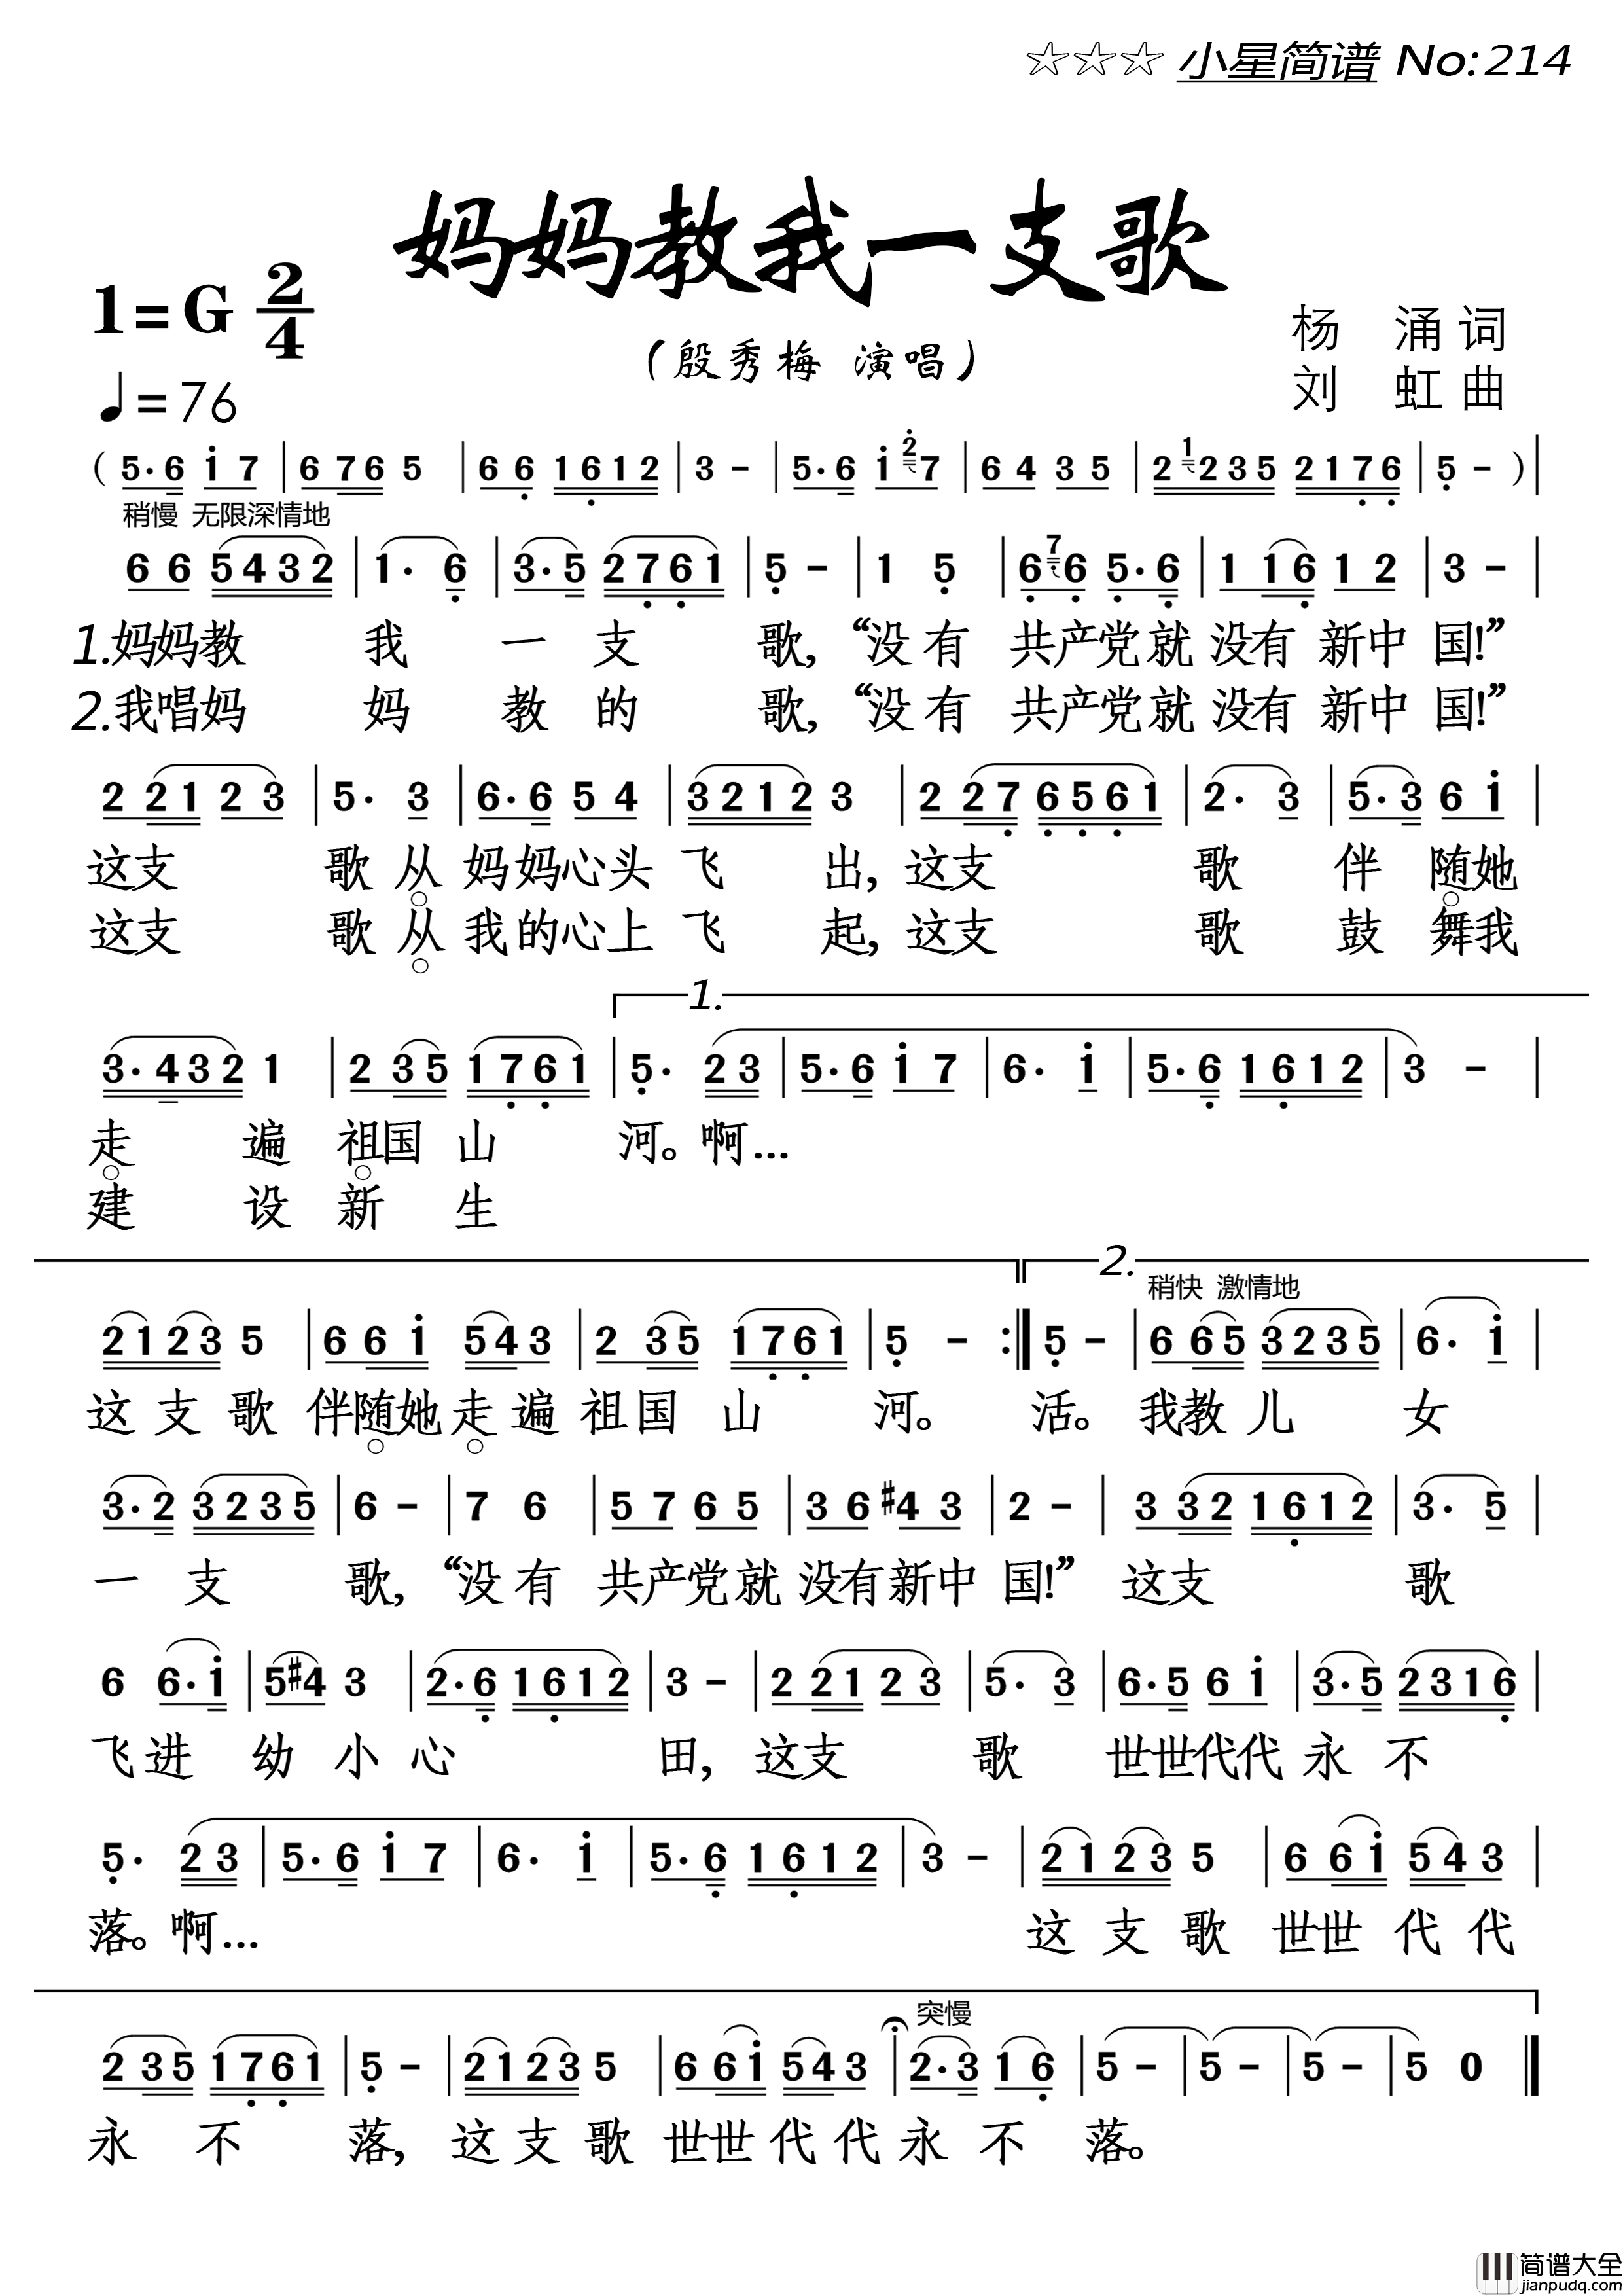 ☆☆☆ 小星简谱 No:214
妈妈教我一支歌
1=G 2/4
(殷秀梅 演唱)
杨 涌 词
刘 虹 曲
♩=76
( 5·6 i 7 | 6 7 6 5 | 6 6 1 6 1 2 | 3 - | 5·6 i 2 7 | 6 4 3 5 | 2 1 2 3 5 2 1 7 6 | 5 - ) |
稍慢 无限深情地
6 6 5 4 3 2 | 1· 6 | 3·5 2 7 6 1 | 5 - | 1 5 | 6 7 6 5·6 | 1 1 6 1 2 | 3 - |
1.妈妈教 我 一 支 歌,“没 有 共产党就 没有 新中 国!”
2.我唱妈 妈 教 的 歌,“没 有 共产党就 没有 新中 国!”
2 2 1 2 3 | 5· 3 | 6·6 5 4 | 3 2 1 2 3 | 2 2 7 6 5 6 1 | 2· 3 | 5·3 6 i |
这支 歌 从 妈妈心头 飞 出, 这支 歌 伴 随她
这支 歌 从 我的心上 飞 起, 这支 歌 鼓 舞我
1.
3·4 3 2 1 | 2 3 5 1 7 6 1 | 5· 2 3 | 5·6 i 7 | 6· i | 5·6 1 6 1 2 | 3 - |
走 遍 祖国 山 河。啊…
建 设 新 生
2.
稍快 激情地
2 1 2 3 5 | 6 6 i 5 4 3 | 2 3 5 1 7 6 1 | 5 - :| 5 - | 6 6 5 3 2 3 5 | 6· i |
这 支 歌 伴随她 走 遍 祖 国 山 河。 活。 我教 儿 女
3·2 3 2 3 5 | 6 - | 7 6 | 5 7 6 5 | 3 6 #4 3 | 2 - | 3 3 2 1 6 1 2 | 3· 5 |
一 支 歌,“没 有 共产党就 没有新中 国!” 这支 歌
6 6·i | 5 #4 3 | 2·6 1 6 1 2 | 3 - | 2 2 1 2 3 | 5· 3 | 6·5 6 i | 3·5 2 3 1 6 |
飞 进 幼 小 心 田, 这支 歌 世世代代 永 不
5· 2 3 | 5·6 i 7 | 6· i | 5·6 1 6 1 2 | 3 - | 2 1 2 3 5 | 6 6 i 5 4 3 |
落。啊… 这 支 歌 世世 代 代
突慢
2 3 5 1 7 6 1 | 5 - | 2 1 2 3 5 | 6 6 i 5 4 3 | 2·3 1 6 | 5 - | 5 - | 5 - | 5 0 ‖
永 不 落, 这 支 歌 世世 代 代 永 不 落。
简谱大全
jianpudq.com